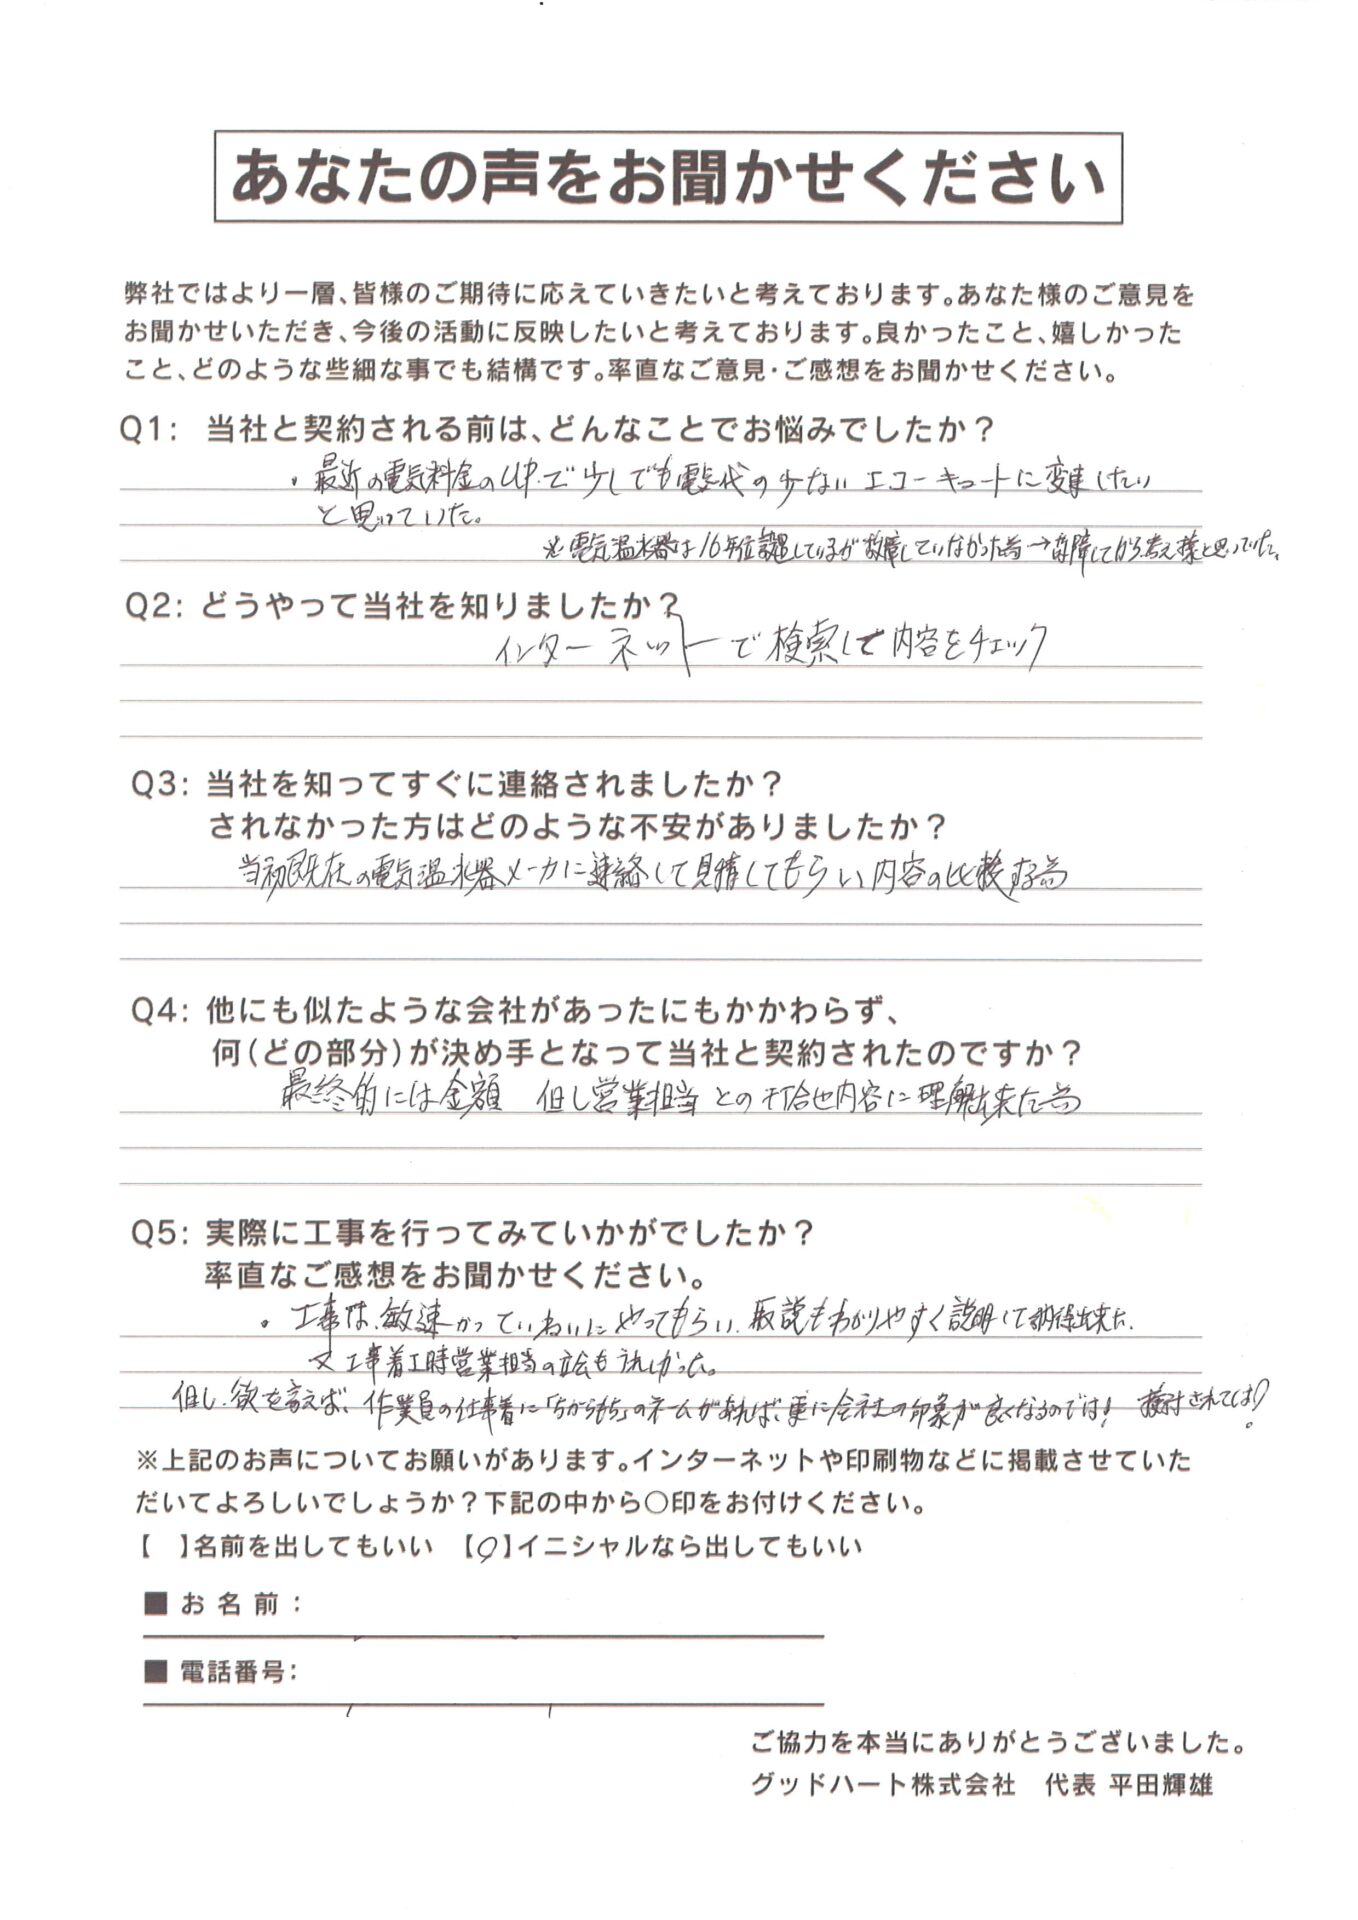 あなたの声をお聞かせください
弊社ではより一層、皆様のご期待に応えていきたいと考えております。あなた様のご意見を
お聞かせいただき、今後の活動に反映したいと考えております。良かったこと、嬉しかった
こと、どのような些細な事でも結構です。率直なご意見・ご感想をお聞かせください。
Q1: 当社と契約される前は、どんなことでお悩みでしたか？
・最近の電気料金のUPで少しでも電気代の少ないエコーキュートに変更したい
と思っていた。
※電気温水器は16年位経過しているが故障していなかった為→故障してから考え様と思っていた。
Q2: どうやって当社を知りましたか？
インターネットで検索して内容をチェック
Q3: 当社を知ってすぐに連絡されましたか？
されなかった方はどのような不安がありましたか？
当初既在の電気温水器メーカに連絡して見積してもらい内容の比較する為
Q4: 他にも似たような会社があったにもかかわらず、
何（どの部分）が決め手となって当社と契約されたのですか？
最終的には金額 但し営業担当との打合せ内容に理解出来た為
Q5: 実際に工事を行ってみていかがでしたか？
率直なご感想をお聞かせください。
・工事は、敏速かつていねいにやってもらい、取説もわかりやすく説明して納得出来た。
又工事着工時営業担当の立会もうれしかった。
但し、欲を言えば、作業員の仕事着に「ちからもち」のネームがあれば、更に会社の印象が良くなるのでは! 検討されては!
※上記のお声についてお願いがあります。インターネットや印刷物などに掲載させていた
だいてよろしいでしょうか？下記の中から○印をお付けください。
【 】名前を出してもいい 【○】イニシャルなら出してもいい
■ お名前：
■ 電話番号：
ご協力を本当にありがとうございました。
グッドハート株式会社 代表 平田輝雄